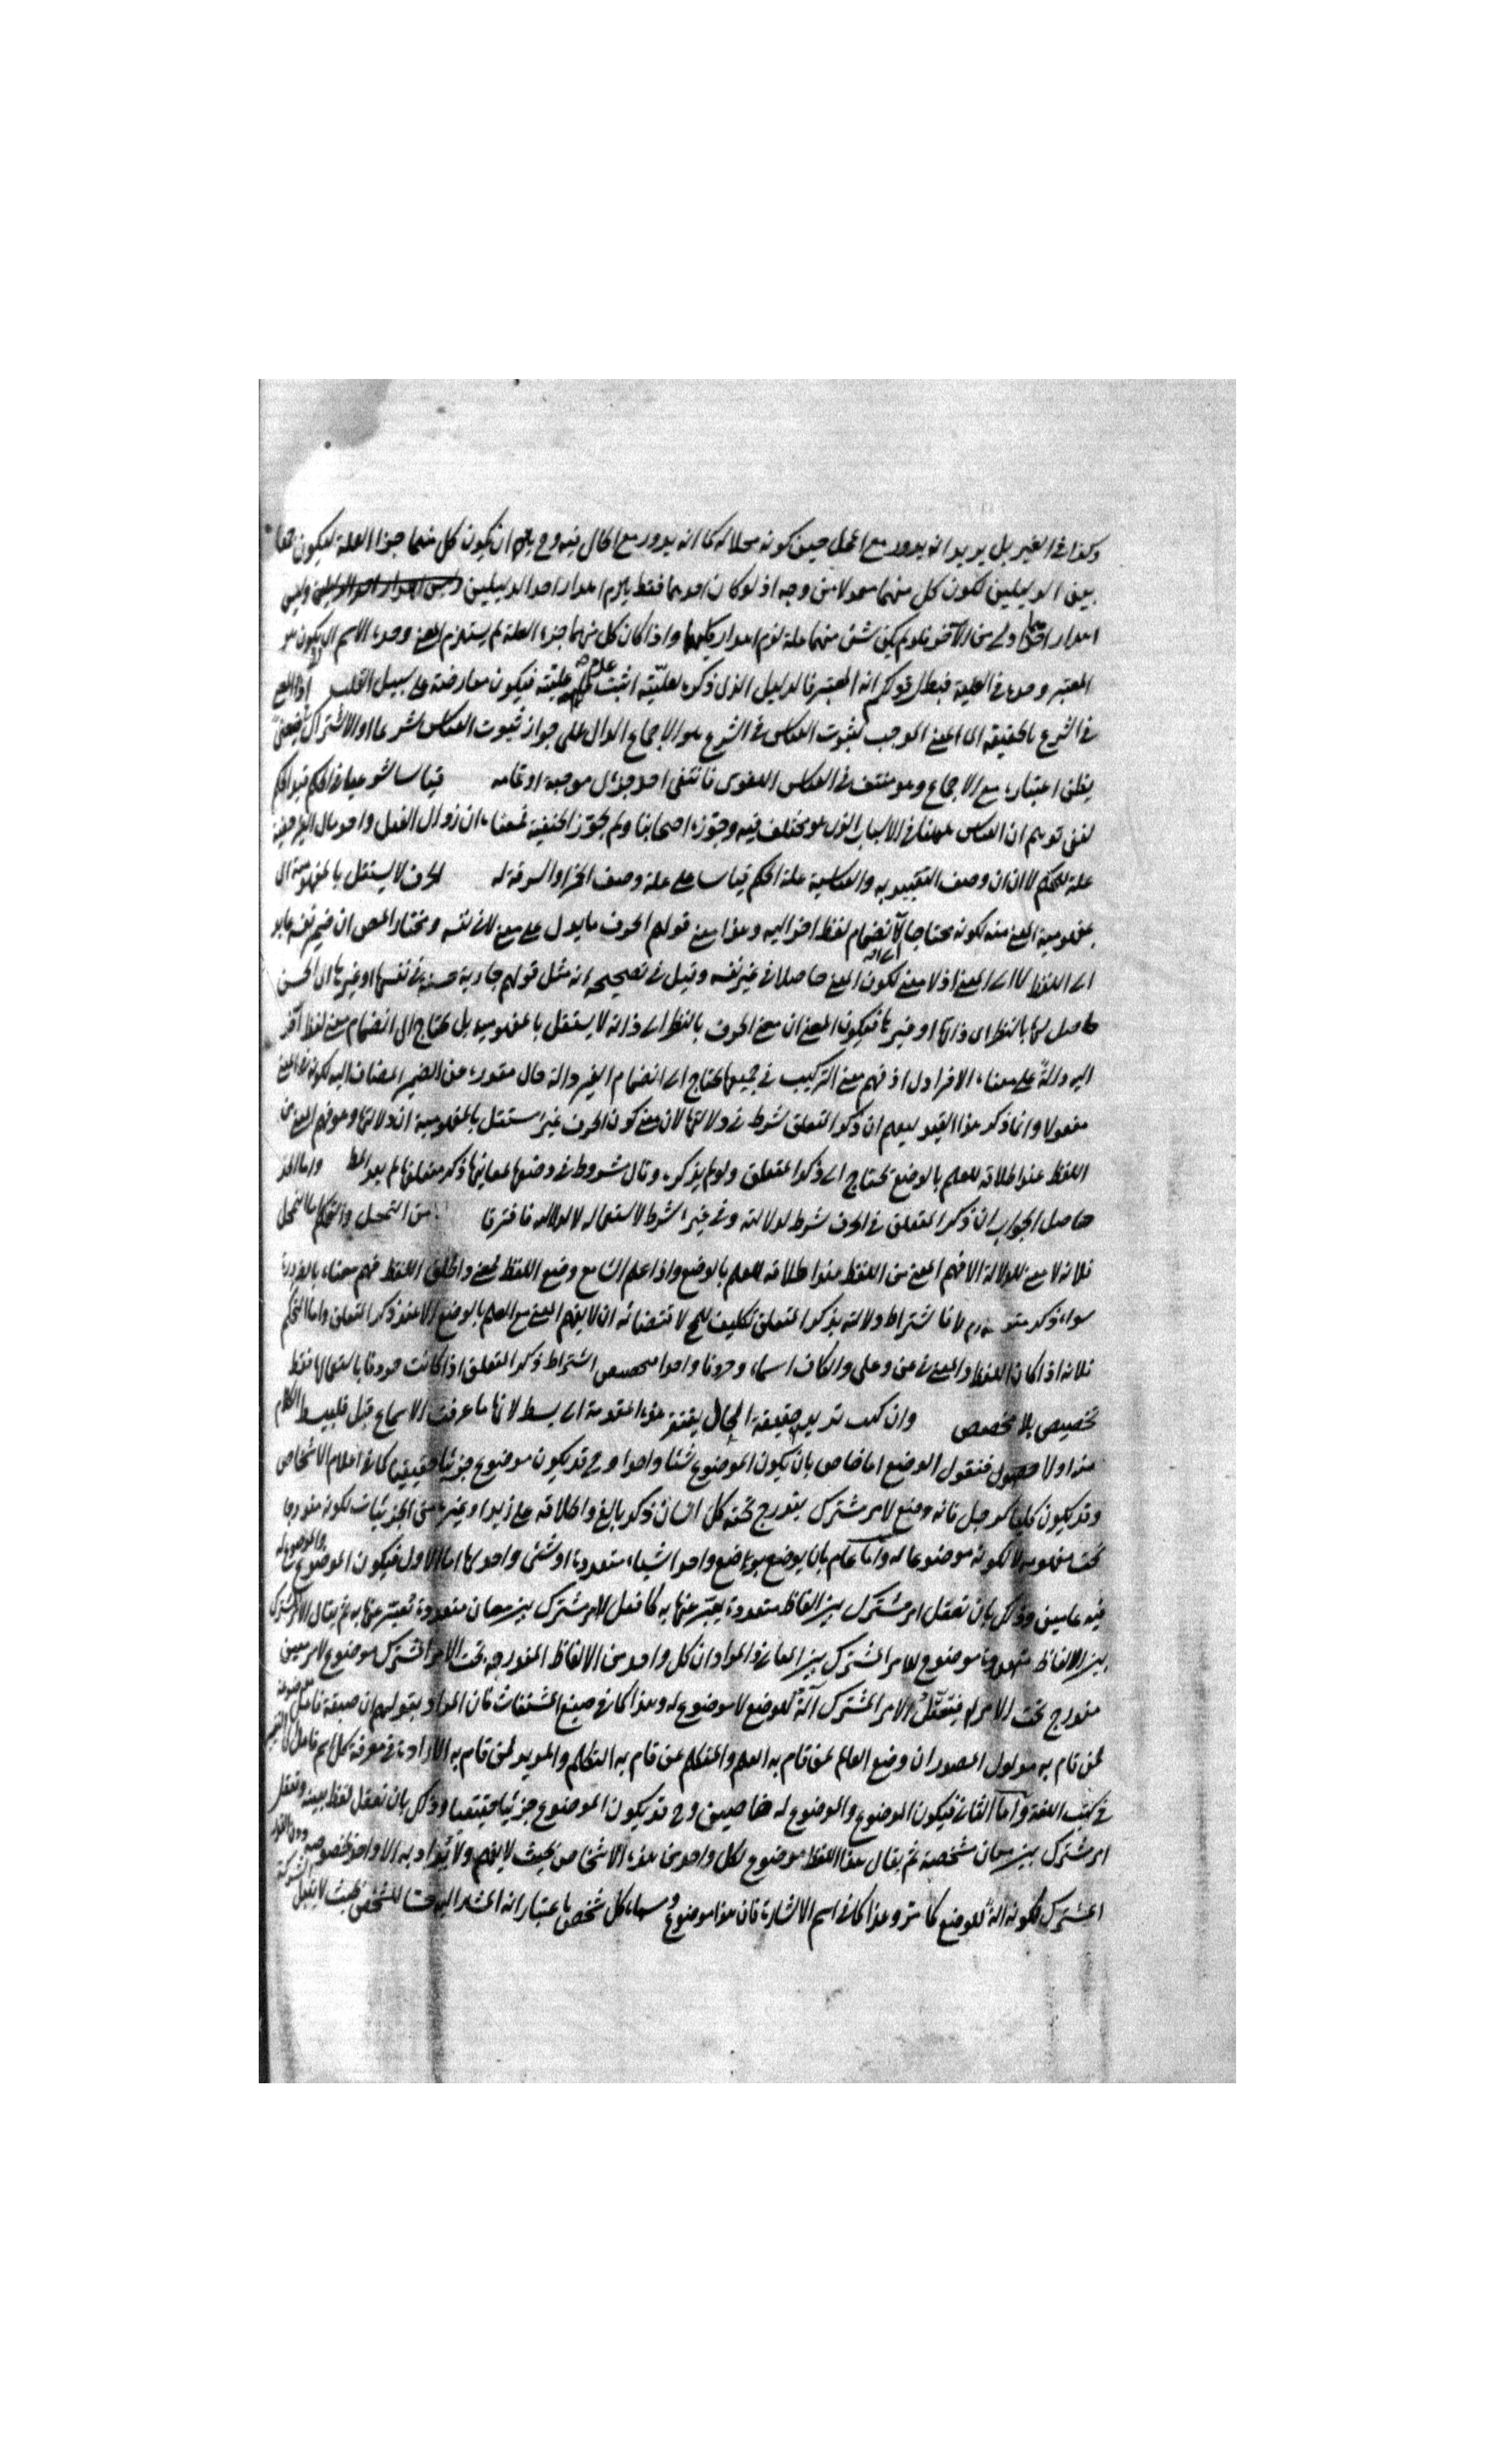 وكذا في الغير بل يريد انه يدور مع المحل حين كونه محلا له كما انه يدور مع الحال فيه وح يلزم ان يكون كل منهما جزا العلة ليكون جمعا
بين الدليلين لكون كل منهما معمولا من وجه اذ لو كان احدهما فقط يلزم اهدار احد الدليلين وليس
اهدار احدهما اولى من الآخر ولو لم يكن شئ منهما علة لزم اهدار كليهما واذا كان كل منهما جزء العلة لم يستلزم المعنى وحده الاسم ان يكون هو
المعتبر وحده في العلية فبطل قولكم انه المعتبر فالدليل الذي ذكره لعليّته اثبت عدم عليّته فيكون معارضة على سبيل القلب
في الشرع بالحقيقة الى المعنى الموجب لثبوت القياس في الشرع هو الاجماع الدال على جواز ثبوت القياس شرعا
اعتباره مع الاجماع وهو منتف في القياس اللغوي فانتفى احد جزئي موجبه او تمامه قياسا شرعيا في الحكم
لنفي توهم ان القياس ههنا في الاسباب الذي هو مختلف فيه وجوزه اصحابنا ولم يجوز الحنفية
علة للحكم لا ان وصف التعبيد به والقياسية علة الحكم قياسا على علة وصف الخمر او السرقة له الحرف لا يستقل بالمفهومية اي
بمفهومية المعنى منه لكونه محتاجا لانضمام لفظ اخر اليه وهذا معنى قولهم الحرف ما يدل على معنى لا في نفسه ومختار المص ان ضمير نفسه عايد
الى اللفظ لا الى المعنى اذ لا معنى لكون المعنى حاصلا في غير نفسه وقيل في تصحيحه انه مثل قولهم جارية حسنة في نفسها او غيرها اي الحسن
حاصل لها بالنظر الى ذاتها او غيرها فيكون المعنى ان معنى الحرف بالنظر الى ذاته لا يستقل بالمفهومية بل يحتاج الى انضمام معنى لفظ آخر
اليه دالة على معناه الافرادي اذ فهم معنى التركيب في جميعها يحتاج الى انضمام الغير دالة حال مقدرة من الضمير المضاف اليه لكونه في المعنى
مفعولا وانما ذكر هذا القيد ليعلم ان ذكر المتعلق شرط في دلالتها لان معنى كون الحرف غير مستقل بالمفهومية ان دلالتها وهو فهم المعنى من
اللفظ عند اطلاقه للعلم بالوضع يحتاج الى ذكر المتعلق ولو لم يذكره وقال مشروط في وضعها لمعانيها ذكر متعلقها لم يعد
حاصل الجواب ان ذكر المتعلق في الحرف شرط لدلالته وفي غيره شرط لاستعماله لا لدلالته فافترقا من التمحل والتحكم اما التمحل
فلانه لا معنى للدلالة الا فهم المعنى من اللفظ عند اطلاقه للعلم بالوضع واذا علم السامع وضع اللفظ لمعنى واطلق اللفظ فهم معناه بالضرورة
سواء ذكر متعلقه ام لا فاشتراط دلالته بذكر المتعلق تكليف لاقتضائه ان لا يفهم المعنى مع العلم بالوضع الا عند ذكر المتعلق واما التحكم
فلانه اذا كان اللفظ والمعنى في عن وعلى والكاف اسماء وحروفا واحدا فتخصيص اشتراط ذكر المتعلق اذا كانت حروفا باستعمالها فقط
تخصيص بلا مخصص وان كنت تريد حقيقة الحال يفتقر هذه المقدمة الى بسط لانها ما عرفت الاسماع قبل فليبسط الكلام
منه اولا فنقول الوضع اما خاص بان يكون الموضوع شئا واحدا وح قد يكون موضوع جزئيا حقيقيا كما في اعلام الاشخاص
وقد يكون كليا كرجل فانه وضع لامر مشترك يندرج تحته كل انسان ذكر بالغ واطلاقه على زيد او غيره من الجزئيات لكونه مندرجا
تحت مفهومه لا لكونه موضوعا له واما عام بان يوضع بوضع واحد اشياء متعددة او شئ واحد لها اما الاول فيكون الموضوع والموضوع له
فيه عامين وذلك بان تعقل امر مشترك بين الفاظ متعددة يعبر عنها به كما فعل لامر مشترك بين معان متعددة تعبر عنها به ثم يقال الامر المشترك
بين الالفاظ موضوع للامر المشترك بين المعاني والمراد ان كل واحد من الالفاظ المندرجة تحت الامر المشترك موضوع لامر معين
مندرج تحت الامر فيتعقل الامر المشترك آلة للوضع لا موضوع له وهذا كما في صيغ المشتقات فان المراد بقولهم ان صيغة فاعل موضوعة
لمن قام به مدلول المصدر ان وضع العالم لمن قام به العلم والمتكلم لمن قام به التكلم والمريد لمن قام به الارادة في معرفة كل اسم فاعل
في كتب اللغة واما الثاني فيكون الموضوع والموضوع له خاصين وح قد يكون الموضوع جزئيا حقيقيا وذلك بان تعقل لفظ بعينه وتعقل
امر مشترك بين معان مشخصة ثم يقال هذا اللفظ موضوع لكل واحد من هذه الاشخاص بحيث لا يفهم ولا يراد به الا واحد بخصوصه دون القدر
المشترك لكونه آلة للوضع كما مر وهذا كما في اسم الاشارة فان هذا موضوع ومسماه كل شخص باعتبار انه المشار اليه بحيث لا يقبل الشركة